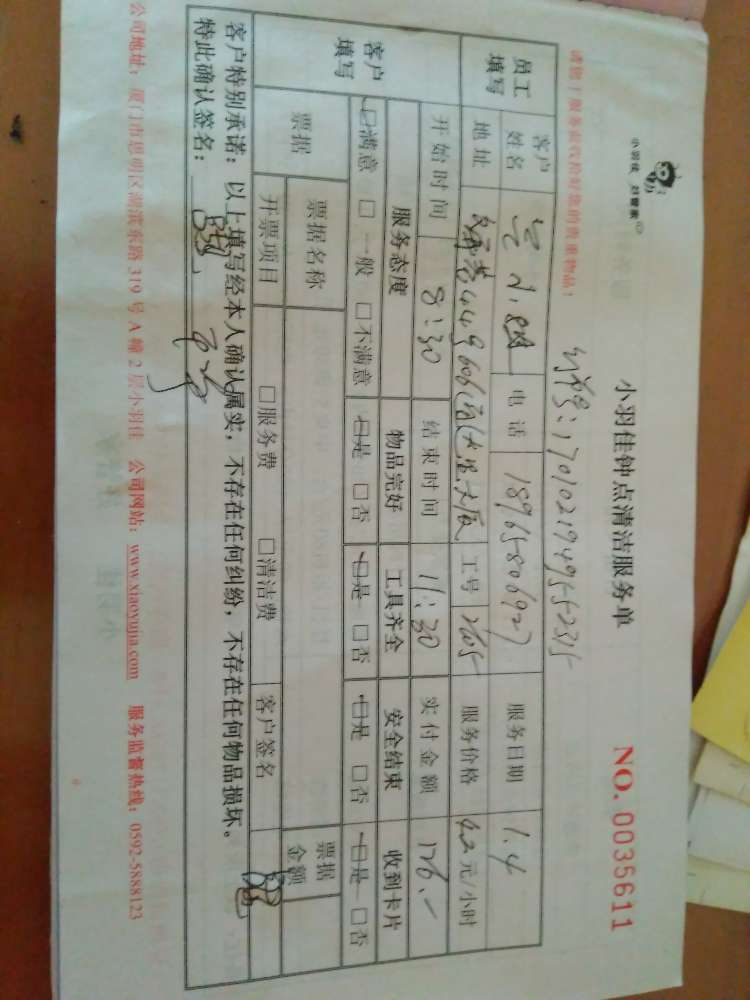 小羽佳 好管家
小羽佳钟点清洁服务单
NO. 0035611
请您于服务前收拾好您的贵重物品！
:1701021949552315
员工填写
客户姓名
电话 18965806927
服务日期 1.4
地址 449 606
工号 2605
服务价格 42元/小时
开始时间 8:30
结束时间 11:30
实付金额 126.-
客户填写
服务态度 物品完好 工具齐全 安全结束 收到卡片
☑满意 □一般 □不满意 ☑是 □否 ☑是 □否 ☑是 □否 ☑是 □否
票据
票据名称
票据金额
开票项目 □服务费 □清洁费 客户签名
客户特别承诺：以上填写经本人确认属实，不存在任何纠纷，不存在任何物品损坏。
特此确认签名：
公司地址：厦门市思明区湖滨东路319号A幢2层小羽佳 公司网站：www.xiaoyujia.com 服务监督热线：0592-5888123